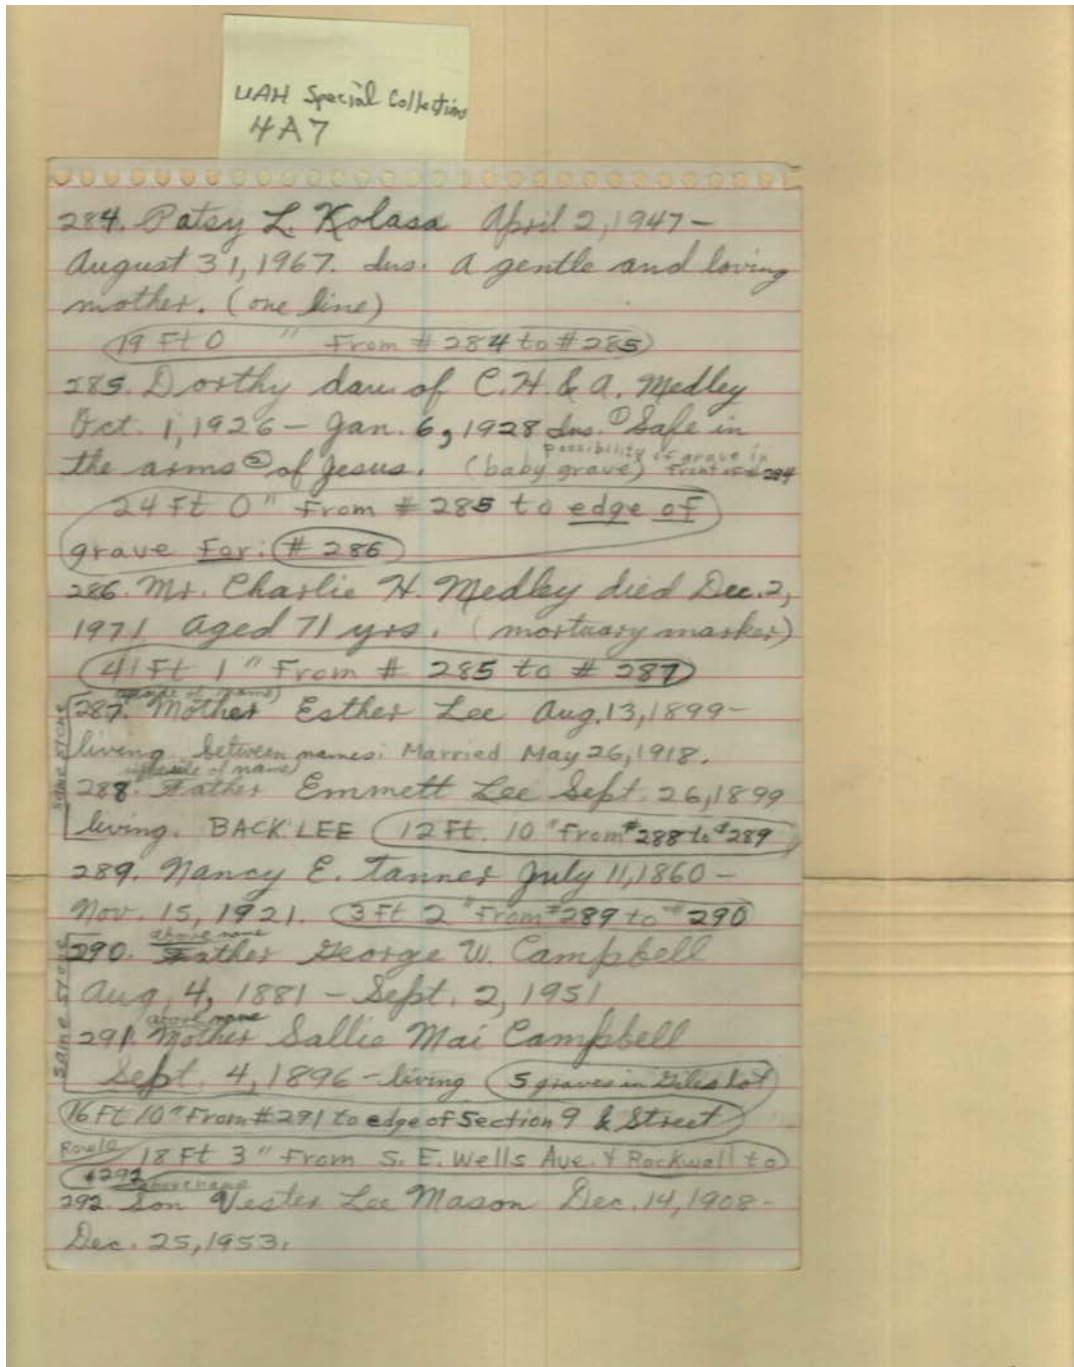 UAH Special Collections
4A7
284. Patsy L. Kolasa April 2, 1947 –
August 31, 1967. Ins. A gentle and loving
mother. (one line)
19 Ft 0 " From # 284 to # 285
285. Dorthy dau of C. H. & A. Medley
Oct. 1, 1926 – Jan. 6, 1928 Ins. ① Safe in
possibility of grave in
the arms ② of Jesus. (baby grave) front of # 284
24 Ft 0" From # 285 to edge of
grave For: # 286
286. Mr. Charlie H. Medley died Dec. 2,
1971 aged 71 yrs. (mortuary marker)
41 Ft 1" From # 285 to # 287
SAME STONE
of name)
287. Mother Esther Lee Aug. 13, 1899 –
living between names: Married May 26, 1918.
of name)
288. Father Emmett Lee Sept. 26, 1899
living. BACK: LEE 12 Ft. 10" From # 288 to # 289
289. Nancy E. Tanner July 11, 1860 –
Nov. 15, 1921. 3 Ft 2" From # 289 to # 290
SAME STONE
above name
290. Father George W. Campbell
Aug. 4, 1881 – Sept. 2, 1951
above name
291. Mother Sallie Mai Campbell
Sept. 4, 1896 – living 5 graves in Giles Lot
16 Ft 10" From # 291 to edge of Section 9 & Street
18 Ft 3" From S. E. Wells Ave. & Rockwell to
# 292 above name
292. Son Vester Lee Mason Dec. 14, 1908 -
Dec. 25, 1953.